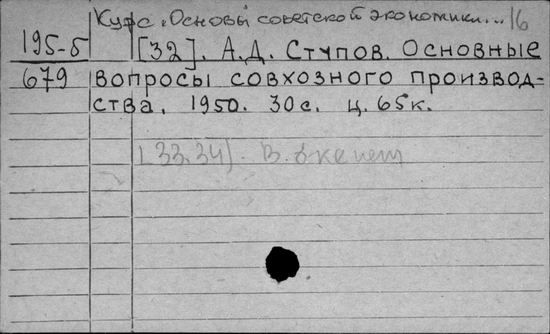 Курс "Основы советской экономики... 16
195-5 [32]. А.Д. Ступов. Основные
679 вопросы совхозного производ-
ства. 1950. 30с. ц. 65к.
[33.34]. В.